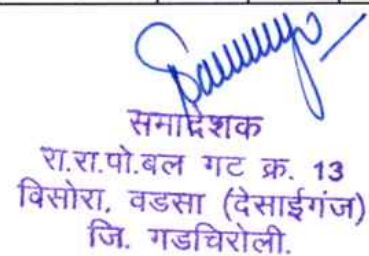 समादेशक
रा.रा.पो.बल गट क्र. 13
विसोरा, वडसा (देसाईगंज)
जि. गडचिरोली.